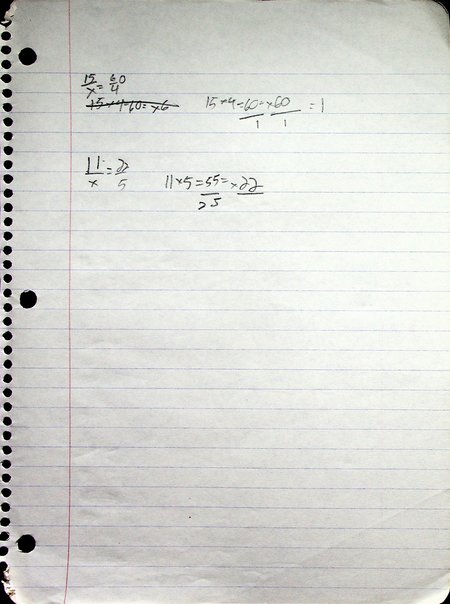 15/x = 60/4
15 x 4 = 60 = x60 = 1
1 1
11/x = 22/5
11 x 5 = 55 = x22
2.5